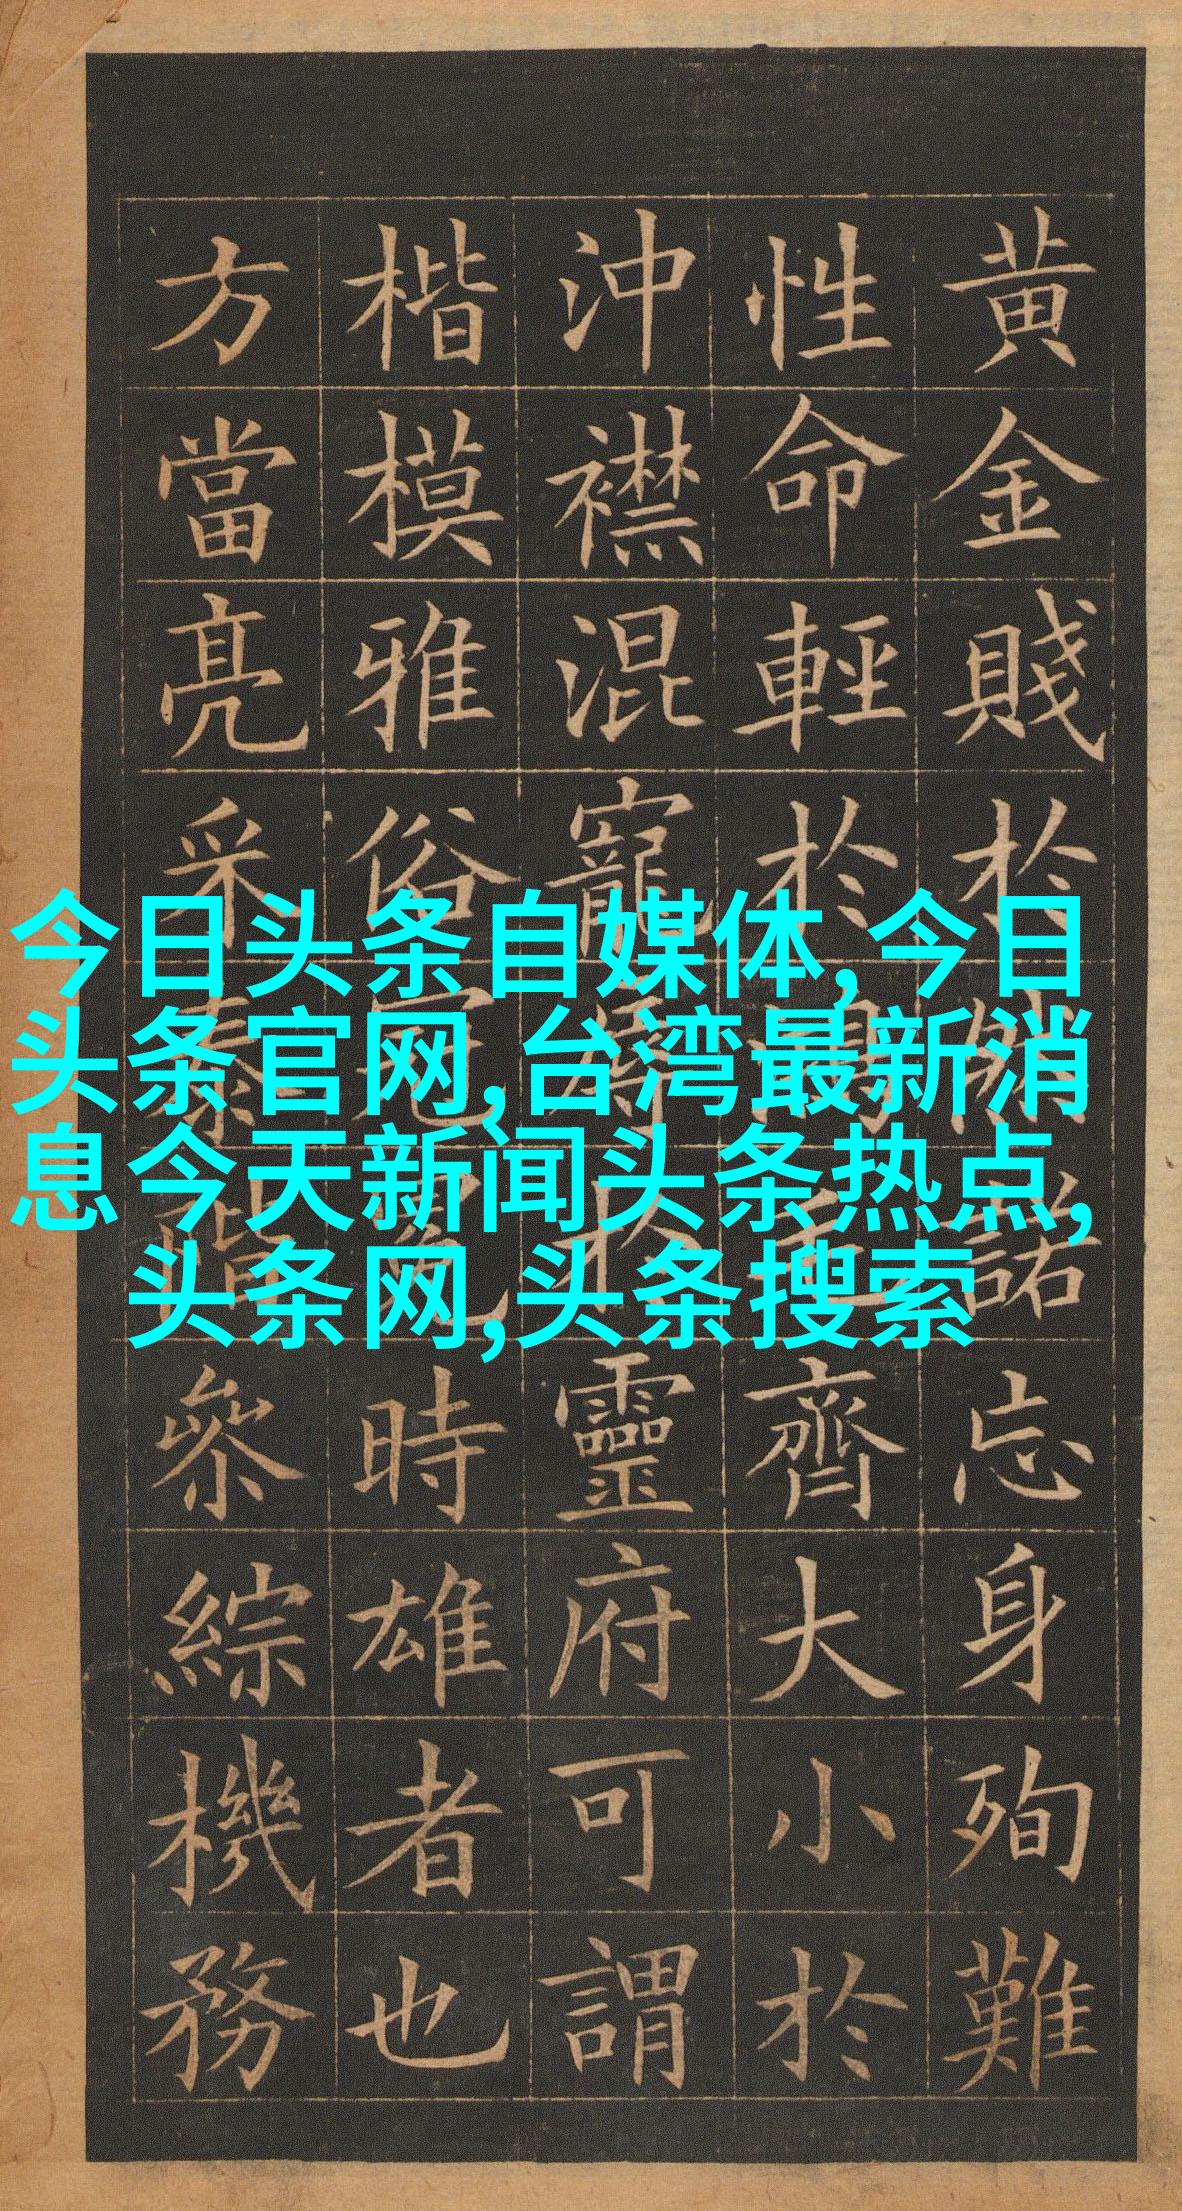 今日头条自媒体,今日
头条官网,台湾最新消
息今天新闻头条热点,
头条网,头条搜索
黄金賤於諾忘身殉難
性命輕於齊大小於
沖襟混寵於靈府可謂
楷模雅俗冠冕時雄者也
方當亮采泰階參綜機務